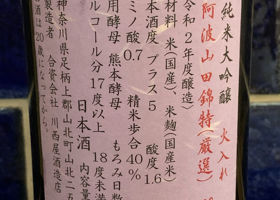 純米大吟醸 火入れ
阿波山田錦特(厳選)
令和2年度醸造)
原材料 米(国産米)、米麹(国産米)
日本酒度 プラス5 酸度1.6
アミノ酸0.7 精米歩合40%
使用酵母 熊本酵母 もろみ日数
アルコール分17度以上 18度未満
日本酒 内容量
神奈川県足柄上郡山北町山北
製造者 合資会社 川西屋酒造店
酒は20歳になってから。